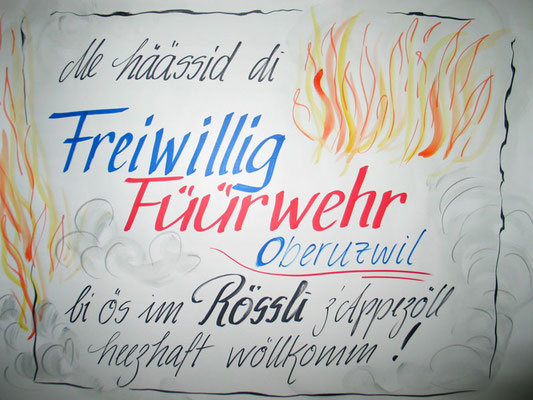 Me häässid di
Freiwillig
Füürwehr
Oberuzwil
bi ös im Rössli z'Appezöll
heezhaft wöllkomm!